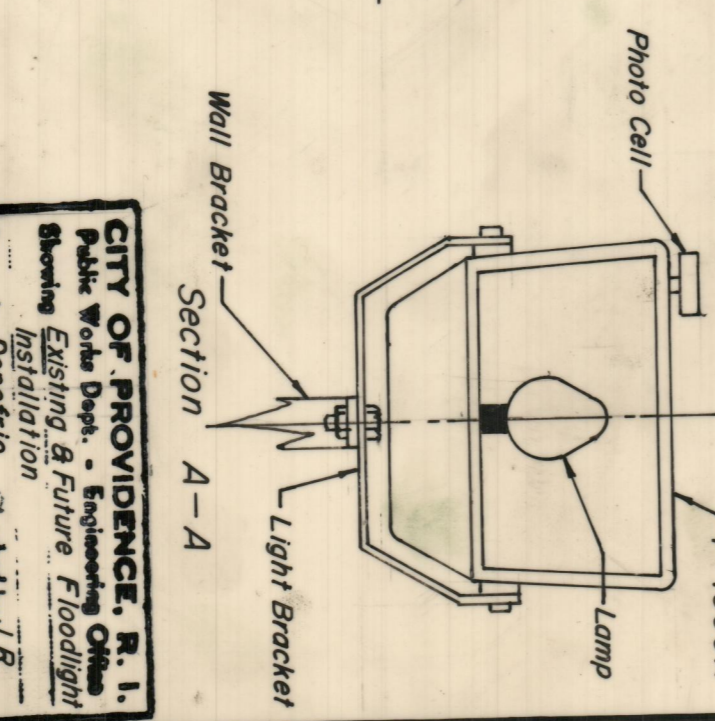 Photo Cell
Lamp
Wall Bracket
Light Bracket
Section A-A
CITY OF PROVIDENCE, R. I.
Public Works Dept. - Engineering Office
Showing Existing & Future Floodlight
Installation